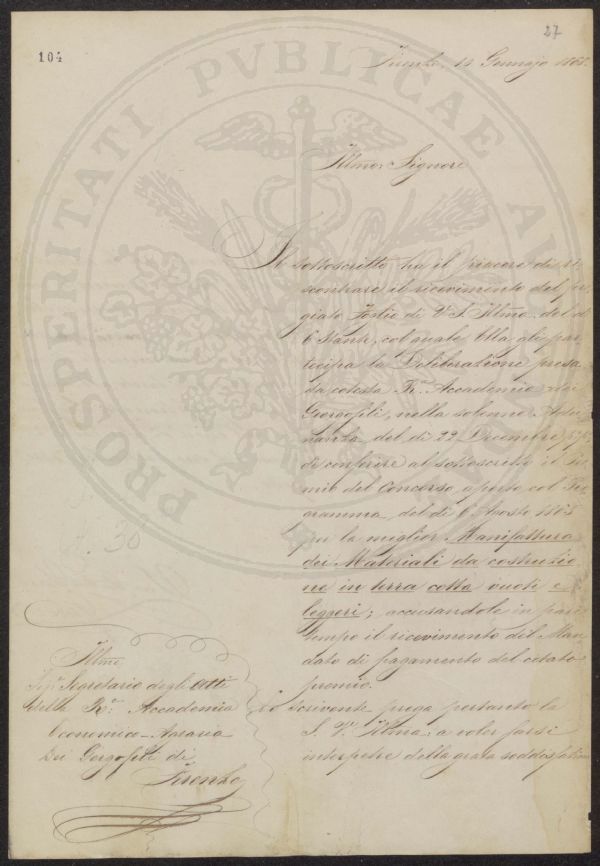 27
104
Firenze, 14 Gennajo 1865.
Illmo: Signore
Il sottoscritto ha il piacere di ri,
scontrare il ricevimento del pre,
giato Foglio di V. S. Illma. del dì
6 stante, col quale Ella gli par,
tecipa la Deliberazione presa
da cotesta R. Accademia dei
Georgofili, nella solenne Adu,
nanza del dì 22 Dicembre
di conferire al sottoscritto il Pre,
mio del Concorso aperto col Pro,
gramma del dì 6 Agosto 1863
per la miglior Manifattura
dei Materiali da costruzio
ne in terra cotta vuoti e
leggeri; accusandole in pari
tempo il ricevimento del Man,
dato di pagamento del citato
premio.
Lo scrivente prega pertanto la
S. V. Illma. a voler farsi
interpetre della grata soddisfazione
Illmo
Sigr. Segretario degli Atti
della R. Accademia
Economico-Agraria
Dei Georgofili di
Firenze
PROSPERITATI PVBLICAE